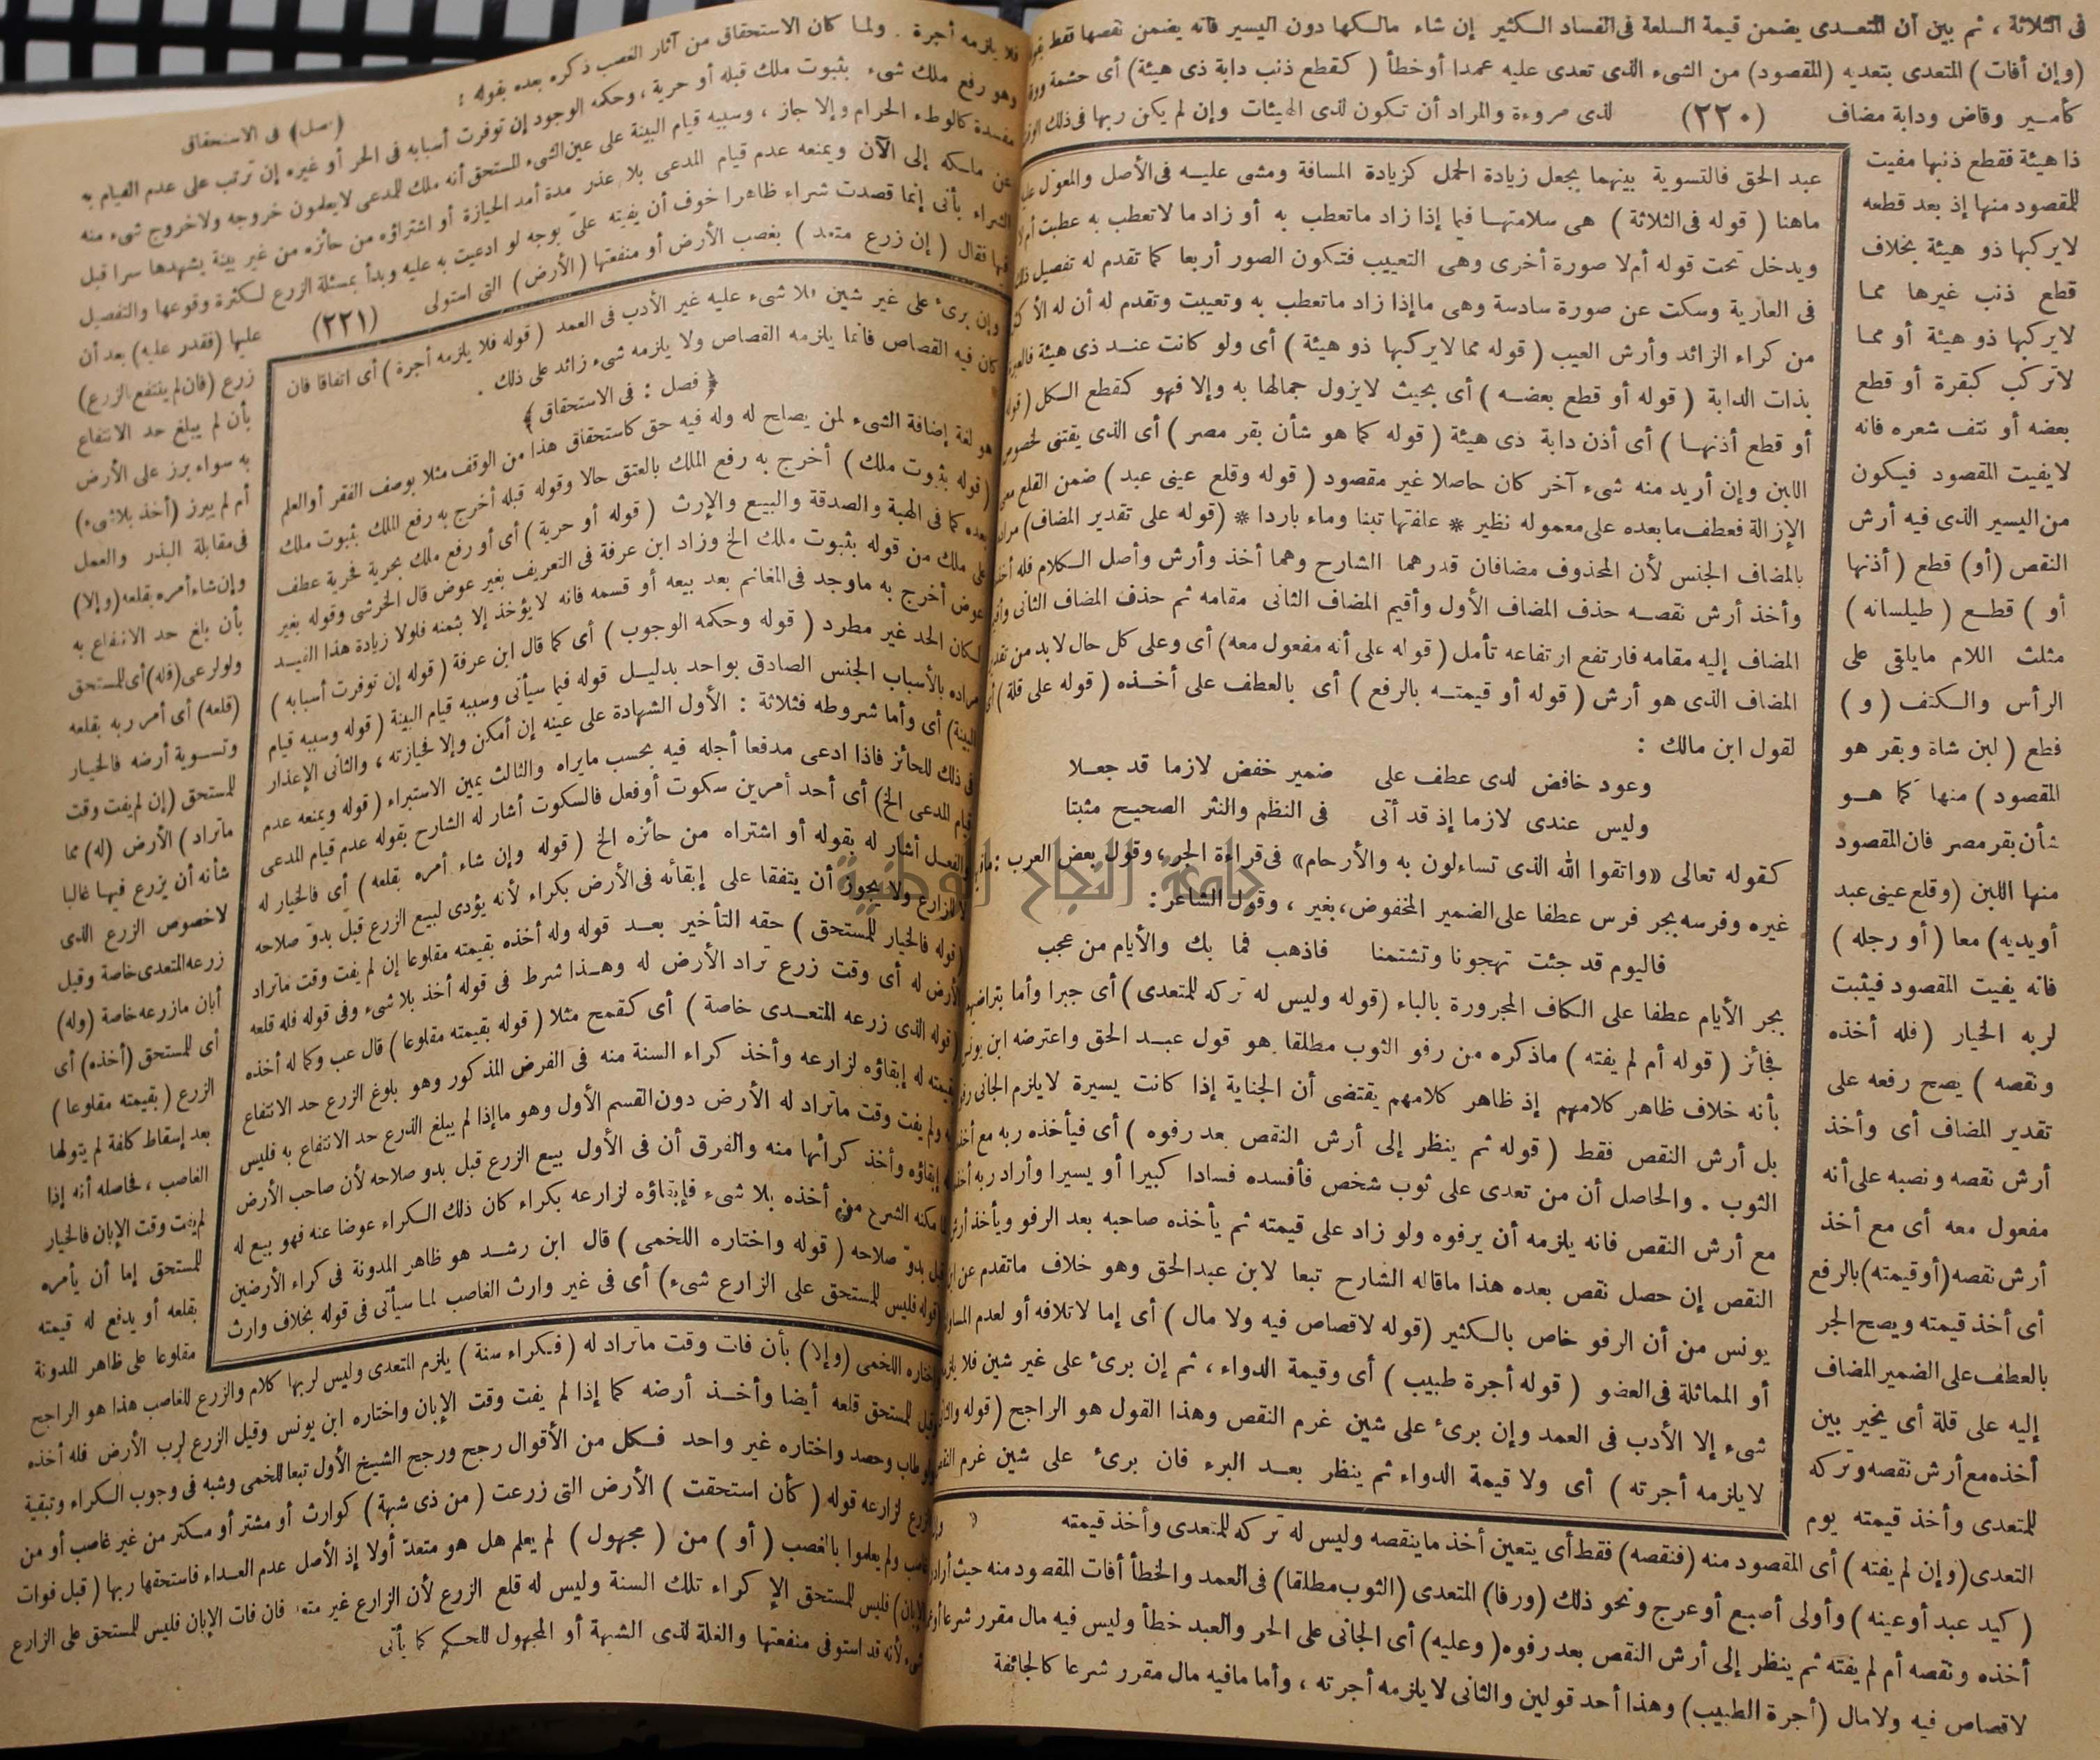 فى الثلاثة ، ثم بين أن المتعدى يضمن قيمة السلعة فى الفساد الكثير إن شاء مالكها دون اليسير فانه يضمن نقصها فقط بقوله
(وإن أفات) المتعدى بتعديه (المقصود) من الشىء الذى تعدى عليه عمدا أوخطأ (كقطع ذنب دابة ذى هيئة) أى حشمة
كأمير وقاض ودابة مضاف (٢٢٠) لذى مروءة والمراد أن تكون لذى الهيئات وإن لم يكن ربها فى ذلك
ذا هيئة فقطع ذنبها مفيت
للمقصود منها إذ بعد قطعه
لايركبها ذو هيئة بخلاف
قطع ذنب غيرها مما
لايركبها ذو هيئة أو مما
لاتركب كبقرة أو قطع
بعضه أو نتف شعره فانه
لايفيت المقصود فيكون
من اليسير الذى فيه أرش
النقص (أو) قطع (أذنها
أو) قطع (طيلسانه)
مثلث اللام مايلقى على
الرأس والكتف (و)
قطع (لبن شاة وبقر هو
المقصود) منها كما هو
شأن بقر مصر فان المقصود
منها اللبن (وقلع عينى عبد
أويديه) معا (أو رجله)
فانه يفيت المقصود فيثبت
لربه الخيار (فله أخذه
ونقصه) يصح رفعه على
تقدير المضاف أى وأخذ
أرش نقصه ونصبه على أنه
مفعول معه أى مع أخذ
أرش نقصه (أوقيمته) بالرفع
أى أخذ قيمته ويصح الجر
بالعطف على الضمير المضاف
إليه على قلة أى يخير بين
أخذه مع أرش نقصه وتركه
للمتعدى وأخذ قيمته يوم
التعدى (وإن لم يفته) أى المقصود منه (فنقصه) فقط أى يتعين أخذ ماينقصه وليس له تركه للمتعدى وأخذ قيمته
(كيد عبد أوعينه) وأولى أصبع أوعرج ونحو ذلك (ورفا) المتعدى (الثوب مطلقا) فى العمد والخطأ أفات المقصود منه حيث أراد
أخذه ونقصه أم لم يفته ثم ينظر إلى أرش النقص بعد رفوه (وعليه) أى الجانى على الحر والعبد خطأ وليس فيه مال مقرر شرعا
لاقصاص فيه ولامال (أجرة الطبيب) وهذا أحد قولين والثانى لايلزمه أجرته ، وأما مافيه مال مقرر شرعا كالجائفة
عبد الحق فالتسوية بينهما بجعل زيادة الحمل كزيادة المسافة ومشى عليه فى الأصل والمعول
ماهنا (قوله فى الثلاثة) هى سلامتها فيما إذا زاد ماتعطب به أو زاد ما لاتعطب به عطبت أم لا
ويدخل تحت قوله أم لا صورة أخرى وهى التعييب فتكون الصور أربعا كما تقدم له تفصيل ذلك
فى العارية وسكت عن صورة سادسة وهى ماإذا زاد ماتعطب به وتعيبت وتقدم له أن له الأكثر
من كراء الزائد وأرش العيب (قوله مما لايركبها ذو هيئة) أى ولو كانت عند ذى هيئة
بذات الدابة (قوله أو قطع بعضه) أى بحيث لايزول جمالها به وإلا فهو كقطع الكل (قوله
أو قطع أذنها) أى أذن دابة ذى هيئة (قوله كما هو شأن بقر مصر) أى الذى يقتنى لخصوص
اللبن وإن أريد منه شىء آخر كان حاصلا غير مقصود (قوله وقلع عينى عبد) ضمن القلع معنى
الإزالة فعطف مابعده على معموله نظير * علفتها تبنا وماء باردا * (قوله على تقدير المضاف)
بالمضاف الجنس لأن المحذوف مضافان قدرهما الشارح وهما أخذ وأرش وأصل الكلام فله أخذه
وأخذ أرش نقصه حذف المضاف الأول وأقيم المضاف الثانى مقامه ثم حذف المضاف الثانى
المضاف إليه مقامه فارتفع ارتفاعه تأمل (قوله على أنه مفعول معه) أى وعلى كل حال لابد من
المضاف الذى هو أرش (قوله أو قيمته بالرفع) أى بالعطف على أخذه (قوله على قلة) أى
لقول ابن مالك :
وعود خافض لدى عطف على ضمير خفض لازما قد جعلا
وليس عندى لازما إذ قد أتى فى النظم والنثر الصحيح مثبتا
كقوله تعالى «واتقوا الله الذى تساءلون به والأرحام» فى قراءة الجر ، وقول بعض العرب :
غيره وفرسه بجر فرس عطفا على الضمير المخفوض ، بغير ، وقول الشاعر :
فاليوم قد جئت تهجونا وتشتمنا فاذهب فما بك والأيام من عجب
بجر الأيام عطفا على الكاف المجرورة بالباء (قوله وليس له تركه للمتعدى) أى جبرا وأما
فجائز (قوله أم لم يفته) ماذكره من رفو الثوب مطلقا هو قول عبد الحق واعترضه ابن يونس
بأنه خلاف ظاهر كلامهم إذ ظاهر كلامهم يقتضى أن الجناية إذا كانت يسيرة لايلزم الجانى
بل أرش النقص فقط (قوله ثم ينظر إلى أرش النقص بعد رفوه) أى فيأخذه ربه مع
الثوب . والحاصل أن من تعدى على ثوب شخص فأفسده فسادا كبيرا أو يسيرا وأراد ربه
مع أرش النقص فانه يلزمه أن يرفوه ولو زاد على قيمته ثم يأخذه صاحبه بعد الرفو ويأخذ
النقص إن حصل نقص بعده هذا ماقاله الشارح تبعا لابن عبدالحق وهو خلاف ماتقدم عن
يونس من أن الرفو خاص بالكثير (قوله لاقصاص فيه ولا مال) أى إما لاتلافه أو لعدم
أو المماثلة فى العضو (قوله أجرة طبيب) أى وقيمة الدواء ، ثم إن برىء على غير شين فلا
شىء إلا الأدب فى العمد وإن برىء على شين غرم النقص وهذا القول هو الراجح (قوله
لايلزمه أجرته) أى ولا قيمة الدواء ثم ينظر بعد البرء فان برىء على شين غرم
فلا يلزمه أجرة . ولما كان الاستحقاق من آثار الغصب ذكره بعده بقوله :
(فصل) فى الاستحقاق
وهو رفع ملك شىء بثبوت ملك قبله أو حرية ، وحكمه الوجوب إن توفرت أسبابه فى الحر أو غيره إن ترتب على عدم القيام به
مفسدة كالوطء الحرام وإلا جاز ، وسببه قيام البينة على عين الشىء المستحق أنه ملك للمدعى لايعلمون خروجه ولاخروج شىء منه
عن ملكه إلى الآن ويمنعه عدم قيام المدعى بلا عذر مدة أمد الحيازة أو اشتراؤه من حائزه من غير بينة يشهدها سرا قبل
الشراء بأنى إنما قصدت شراء ظاهرا خوف أن يفيته على بوجه لو ادعيت به عليه وبدأ بمسئلة الزرع لكثرة وقوعها والتفصيل
فيها فقال (إن زرع متعد) بغصب الأرض أو منفعتها (الأرض) التى استولى (٢٢١)
عليها (فقدر عليه) بعد أن
زرع (فان لم ينتفع الزرع)
بأن لم يبلغ حد الانتفاع
به سواء برز على الأرض
أم لم يبرز (أخذ بلاشىء)
فى مقابلة البذر والعمل
وإن شاء أمره بقلعه (وإلا)
بأن بلغ حد الانتفاع به
ولو لرعى (فله) أى للمستحق
(قلعه) أى أمر ربه بقلعه
وتسوية أرضه فالخيار
للمستحق (إن لم يفت وقت
ماتراد) الأرض (له) مما
شأنه أن يزرع فيها غالبا
لاخصوص الزرع الذى
زرعه المتعدى خاصة وقيل
أبان مازرعه خاصة (وله)
أى للمستحق (أخذه) أى
الزرع (بقيمته مقلوعا)
بعد إسقاط كلفة لم يتولها
الغاصب ، فحاصله أنه إذا
لم يفت وقت الإبان فالخيار
للمستحق إما أن يأمره
بقلعه أو يدفع له قيمته
مقلوعا على ظاهر المدونة
واختاره اللخمى (وإلا) بأن فات وقت ماتراد له (فكراء سنة) يلزم المتعدى وليس لربها كلام والزرع للغاصب هذا هو الراجح
وقيل للمستحق قلعه أيضا وأخذ أرضه كما إذا لم يفت وقت الإبان واختاره ابن يونس وقيل الزرع لرب الأرض فله أخذه
ولو طاب وحصد واختاره غير واحد فكل من الأقوال رجح ورجح الشيخ الأول تبعا للخمى وشبه فى وجوب الكراء وتبقية
الزرع لزارعه قوله (كأن استحقت) الأرض التى زرعت (من ذى شبهة) كوارث أو مشتر أو مكتر من غير غاصب أو من
غاصب ولم يعلموا بالغصب (أو) من (مجهول) لم يعلم هل هو متعد أولا إذ الأصل عدم العداء فاستحقها ربها (قبل فوات
الإبان) فليس للمستحق إلا كراء تلك السنة وليس له قلع الزرع لأن الزارع غير متعد فان فات الإبان فليس للمستحق على الزارع
شىء لأنه قد استوفى منفعتها والغلة لذى الشبهة أو المجهول للحكم كما يأتى
وإن برىء على غير شين فلا شىء عليه غير الأدب فى العمد (قوله فلا يلزمه أجرة) أى اتفاقا فان
كان فيه القصاص فانما يلزمه القصاص ولا يلزمه شىء زائد على ذلك .
﴿ فصل : فى الاستحقاق ﴾
هو لغة إضافة الشىء لمن يصلح له وله فيه حق كاستحقاق هذا من الوقف مثلا بوصف الفقر أوالعلم
(قوله بثبوت ملك) أخرج به رفع الملك بالعتق حالا وقوله قبله أخرج به رفع الملك بثبوت ملك
بعده كما فى الهبة والصدقة والبيع والإرث (قوله أو حرية) أى أو رفع ملك بحرية فحرية عطف
على ملك من قوله بثبوت ملك الخ وزاد ابن عرفة فى التعريف بغير عوض قال الخرشى وقوله بغير
عوض أخرج به ماوجد فى المغانم بعد بيعه أو قسمه فانه لايؤخذ إلا بثمنه فلولا زيادة هذا القيد
لكان الحد غير مطرد (قوله وحكمه الوجوب) أى كما قال ابن عرفة (قوله إن توفرت أسبابه)
مراده بالأسباب الجنس الصادق بواحد بدليل قوله فيما سيأتى وسببه قيام البينة (قوله وسببه قيام
البينة) أى وأما شروطه فثلاثة : الأول الشهادة على عينه إن أمكن وإلا فحيازته ، والثانى الإعذار
فى ذلك للحائز فاذا ادعى مدفعا أجله فيه بحسب مايراه والثالث يمين الاستبراء (قوله ويمنعه عدم
قيام المدعى الخ) أى أحد أمرين سكوت أوفعل فالسكوت أشار له الشارح بقوله عدم قيام المدعى
والفعل أشار له بقوله أو اشتراه من حائزه الخ (قوله وإن شاء أمره بقلعه) أى فالخيار له
لا للزارع ولا يجوز أن يتفقا على إبقائه فى الأرض بكراء لأنه يؤدى لبيع الزرع قبل بدو صلاحه
(قوله فالخيار للمستحق) حقه التأخير بعد قوله وله أخذه بقيمته مقلوعا إن لم يفت وقت ماتراد
الأرض له أى وقت زرع تراد الأرض له وهذا شرط فى قوله أخذ بلا شىء وفى قوله فله قلعه
(قوله الذى زرعه المتعدى خاصة) أى كقمح مثلا (قوله بقيمته مقلوعا) قال عب وكما له أخذه
بقيمته له إبقاؤه لزارعه وأخذ كراء السنة منه فى الفرض المذكور وهو بلوغ الزرع حد الانتفاع
به ولم يفت وقت ماتراد له الأرض دون القسم الأول وهو ماإذا لم يبلغ الزرع حد الانتفاع به فليس
له إبقاؤه وأخذ كرائها منه والفرق أن فى الأول بيع الزرع قبل بدو صلاحه لأن صاحب الأرض
لما مكنه الشرح من أخذه بلا شىء فإبقاؤه لزارعه بكراء كان ذلك الكراء عوضا عنه فهو بيع له
قبل بدو صلاحه (قوله واختاره اللخمى) قال ابن رشد هو ظاهر المدونة فى كراء الأرضين
(قوله فليس للمستحق على الزارع شىء) أى فى غير وارث الغاصب لما سيأتى فى قوله بخلاف وارث
جامعة النجاح الوطنية